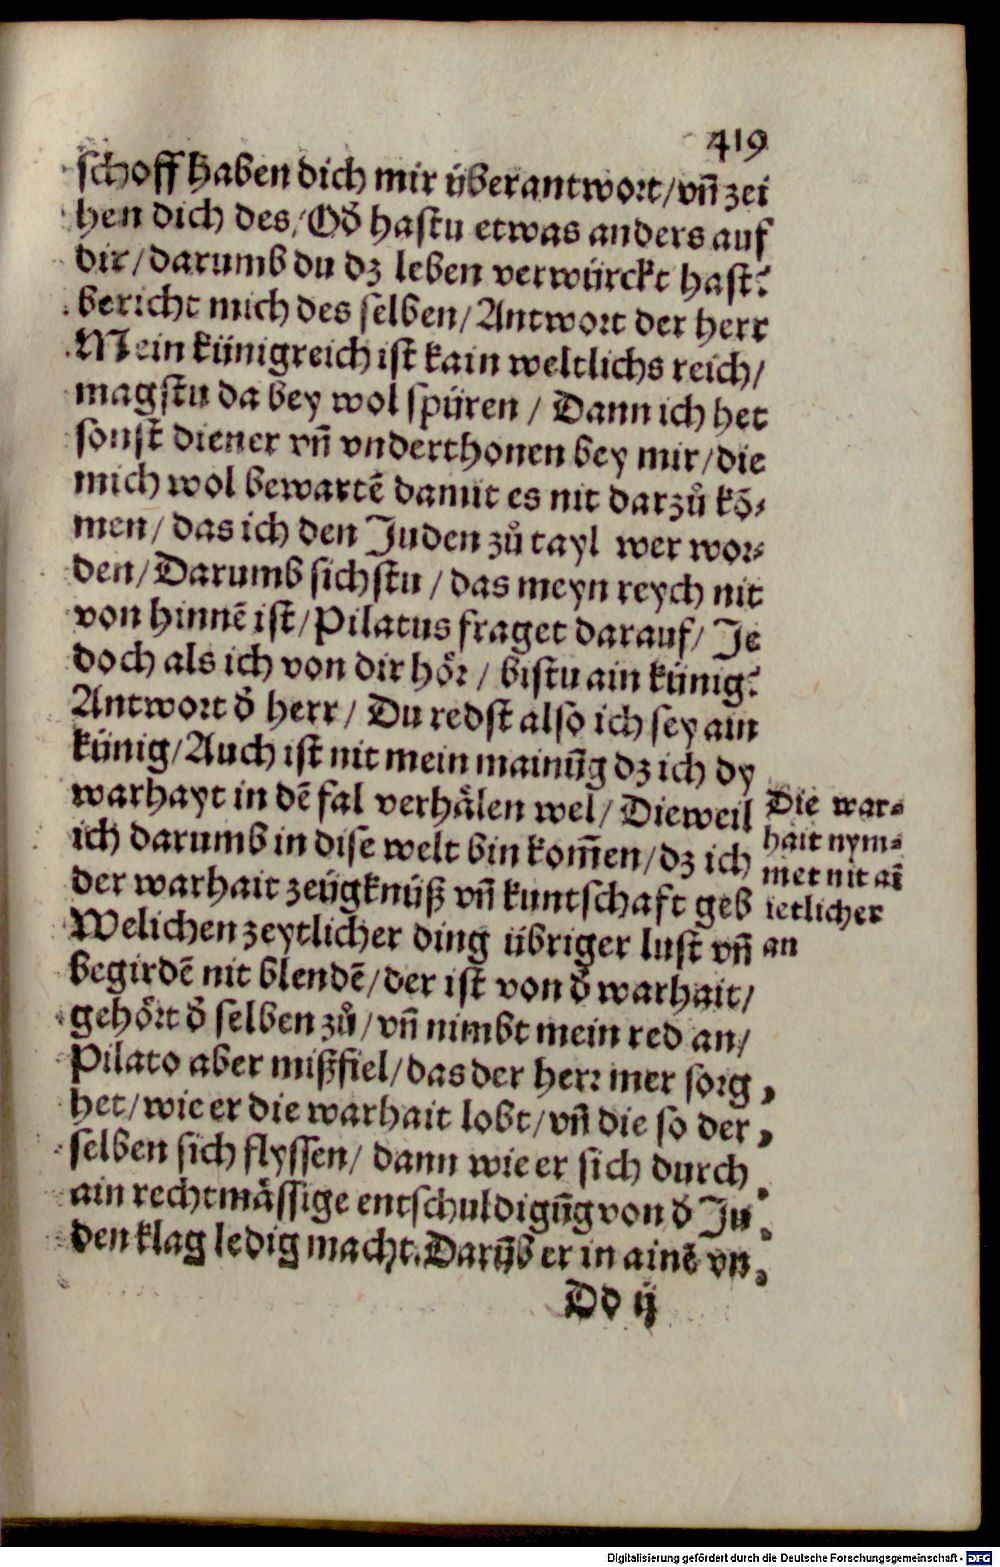 419
schoff haben dich mir überantwort/ vn̄ zei
hen dich des/ Od̄ hastu etwas anders auf
dir/ darumb du dz leben verwürckt hast?
bericht mich des selben/ Antwort der herr
Mein künigreich ist kain weltlichs reich/
magstu da bey wol spüren / Dann ich het
sonst diener vn̄ vnderthonen bey mir/ die
mich wol bewartē damit es nit darzů kō-
men/ das ich den Juden zů tayl wer wor-
den/ Darumb sichstu / das meyn reych nit
von hinnē ist/ Pilatus fraget darauf/ Je
doch als ich von dir hör / bistu ain künig?
Antwort d̄ herr/ Du redst also ich sey ain
künig/ Auch ist nit mein mainūg dz ich dy
warhayt in dē fal verhälen wel/ Dieweil
ich darumb in dise welt bin kom̄en/ dz ich
der warhait zeügknüß vn̄ kuntschaft geb
Welichen zeytlicher ding übriger lust vn̄
begirdē nit blendē/ der ist von d̄ warhait/
gehört d̄ selben zů/ vn̄ nimbt mein red an/
Pilato aber mißfiel/ das der herr mer sorg
het/ wie er die warhait lobt/ vn̄ die so der
selben sich flyssen/ dann wie er sich durch
ain rechtmässige entschuldigūg von d̄ Ju
den klag ledig macht. Darūb er in ainē vn
Die war-
hait nym-
met nit aī
ietlicher
an
Dd ij
Digitalisierung gefördert durch die Deutsche Forschungsgemeinschaft - DFG